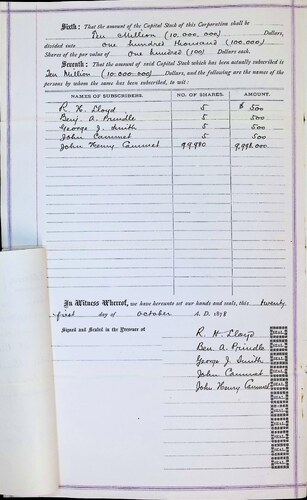 Sixth: That the amount of the Capital Stock of this Corporation shall be
Ten Million (10.000,000) Dollars,
divided into one hundred thousand (100.000)
Shares of the par value of One hundred (100) Dollars each.
Seventh: That the amount of said Capital Stock which has been actually subscribed is
Ten Million (10.000.000) Dollars, and the following are the names of the
persons by whom the same has been subscribed, to wit:
NAMES OF SUBSCRIBERS. NO. OF SHARES. AMOUNT.
R. H. Lloyd 5 $ 500
Benj. A. Prindle 5 500
George J. Smith 5 500
John Cammet 5 500
John Henry Cammet 99.980 9,998.000
In Witness Whereof, we have hereunto set our hands and seals, this twenty
first day of October A. D. 1878
Signed and Sealed in the Presence of
R. H. Lloyd SEAL
Ben A Prindle SEAL
George J. Smith SEAL
John Cammet SEAL
John Henry Cammet SEAL
SEAL
SEAL
SEAL
SEAL
SEAL